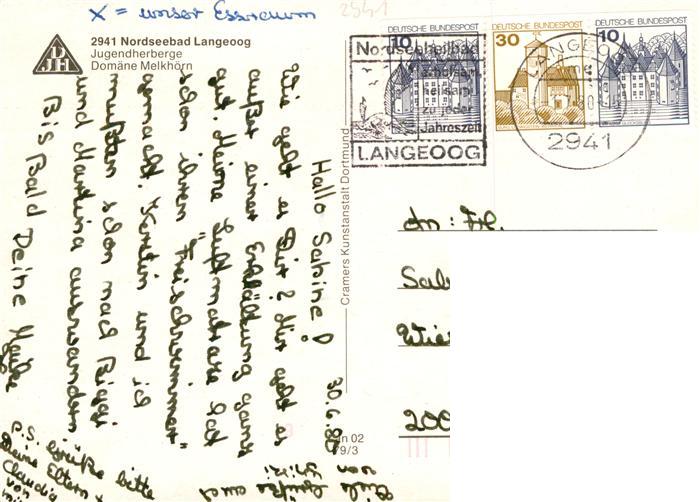 X = unser Essraum
2941
2941 Nordseebad Langeoog
Jugendherberge
Domäne Melkhörn
DJH
DEUTSCHE BUNDESPOST
10
DEUTSCHE BUNDESPOST
30
DEUTSCHE BUNDESPOST
10
Nordseeheilbad
erholsam
heilsam
zu jeder
Jahreszeit
LANGEOOG
LANGEOOG
2941
30.6.80
Hallo Sabine!
Wie geht es Dir? Mir geht es
außer einer Erkältung ganz
gut. Meine Luftmatraze hat
schon ihren "Freischwimmer"
gemacht. Kerstin und ich
mußten schon mal Biggi
und Martina auswandern
Bis Bald Deine
P.S. Grüße bitte
Deine Eltern +
Claudia
von
Viele Grüße auch
von
Cramers Kunstanstalt Dortmund
02
79/3
An: Frl.
Sab
Wie
200